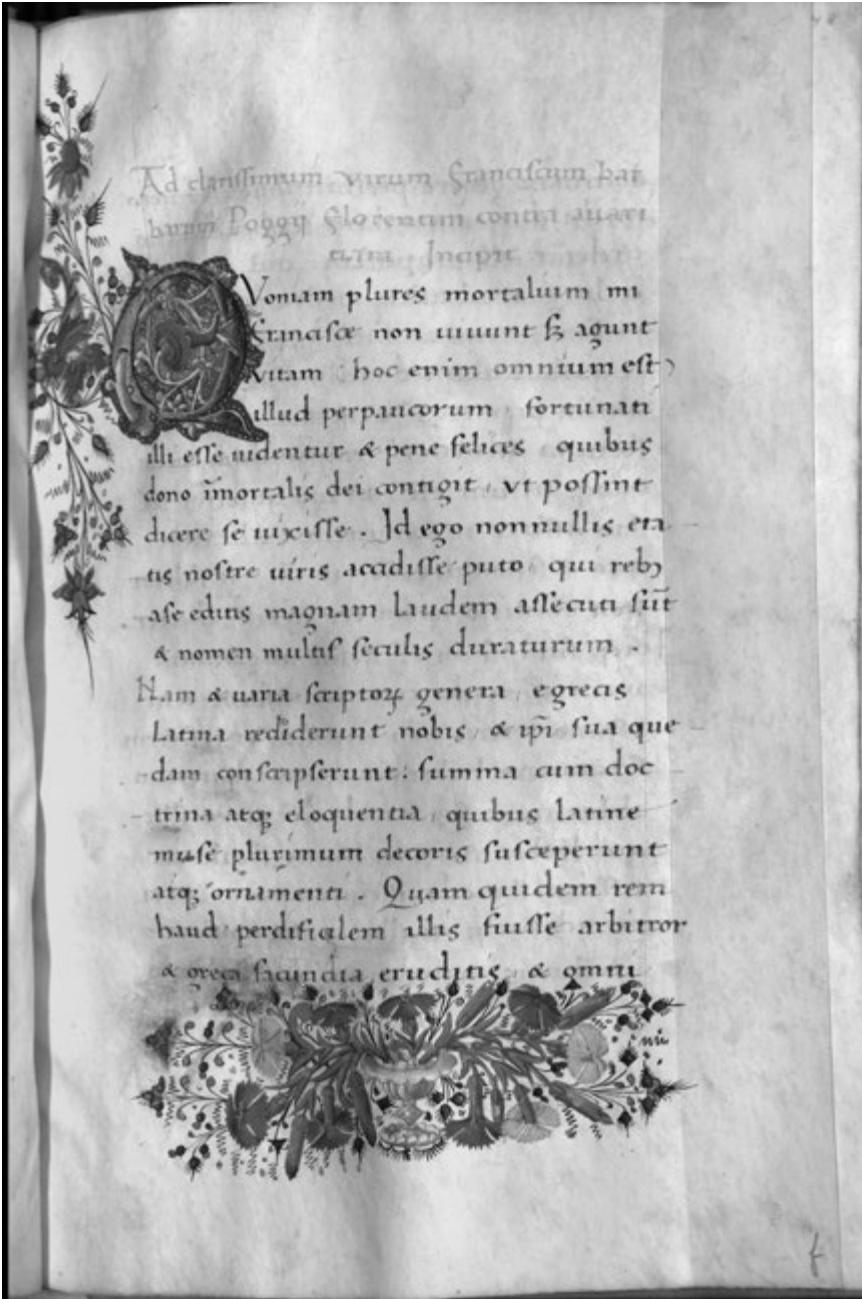 Ad clarissimum virum Franciscum bar
barum Poggij Florentini contra auari
ciam Incipit
QVoniam plures mortalium mi
Francisce non uiuunt sꝫ agunt
vitam : hoc enim omnium est
illud perpaucorum, fortunati
illi esse uidentur & pene felices, quibus
dono īmortalis dei contigit, vt possint
dicere se uixisse. Id ego nonnullis eta
tis nostre uiris accidisse puto, qui rebꝫ
a se editis magnam laudem assecuti sūt
& nomen multis seculis duraturum.
Nam & uaria scriptoꝝ genera, e grecis
Latina rediderunt nobis, & ip̄i sua que
dam conscripserunt: summa cum doc
trina atqꝫ eloquentia, quibus latine
muse plurimum decoris susceperunt
atqꝫ ornamenti. Quam quidem rem
haud perdificilem illis fuisse arbitror
& greca facundia eruditis, & omni